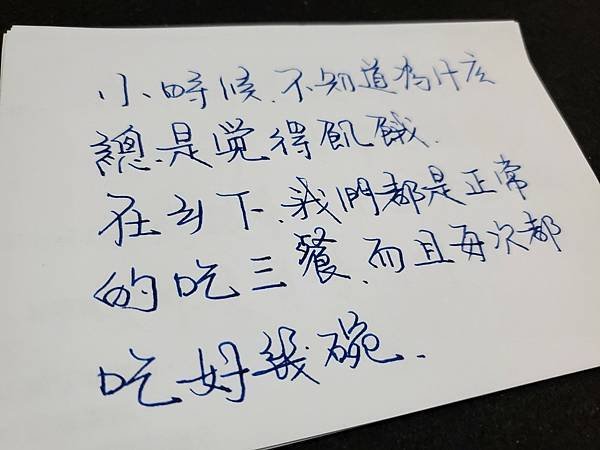 小時候.不知道為什么
總是覚得飢餓.
在乡下.我們都是正常
的吃三餐.而且每次都
吃好幾碗.